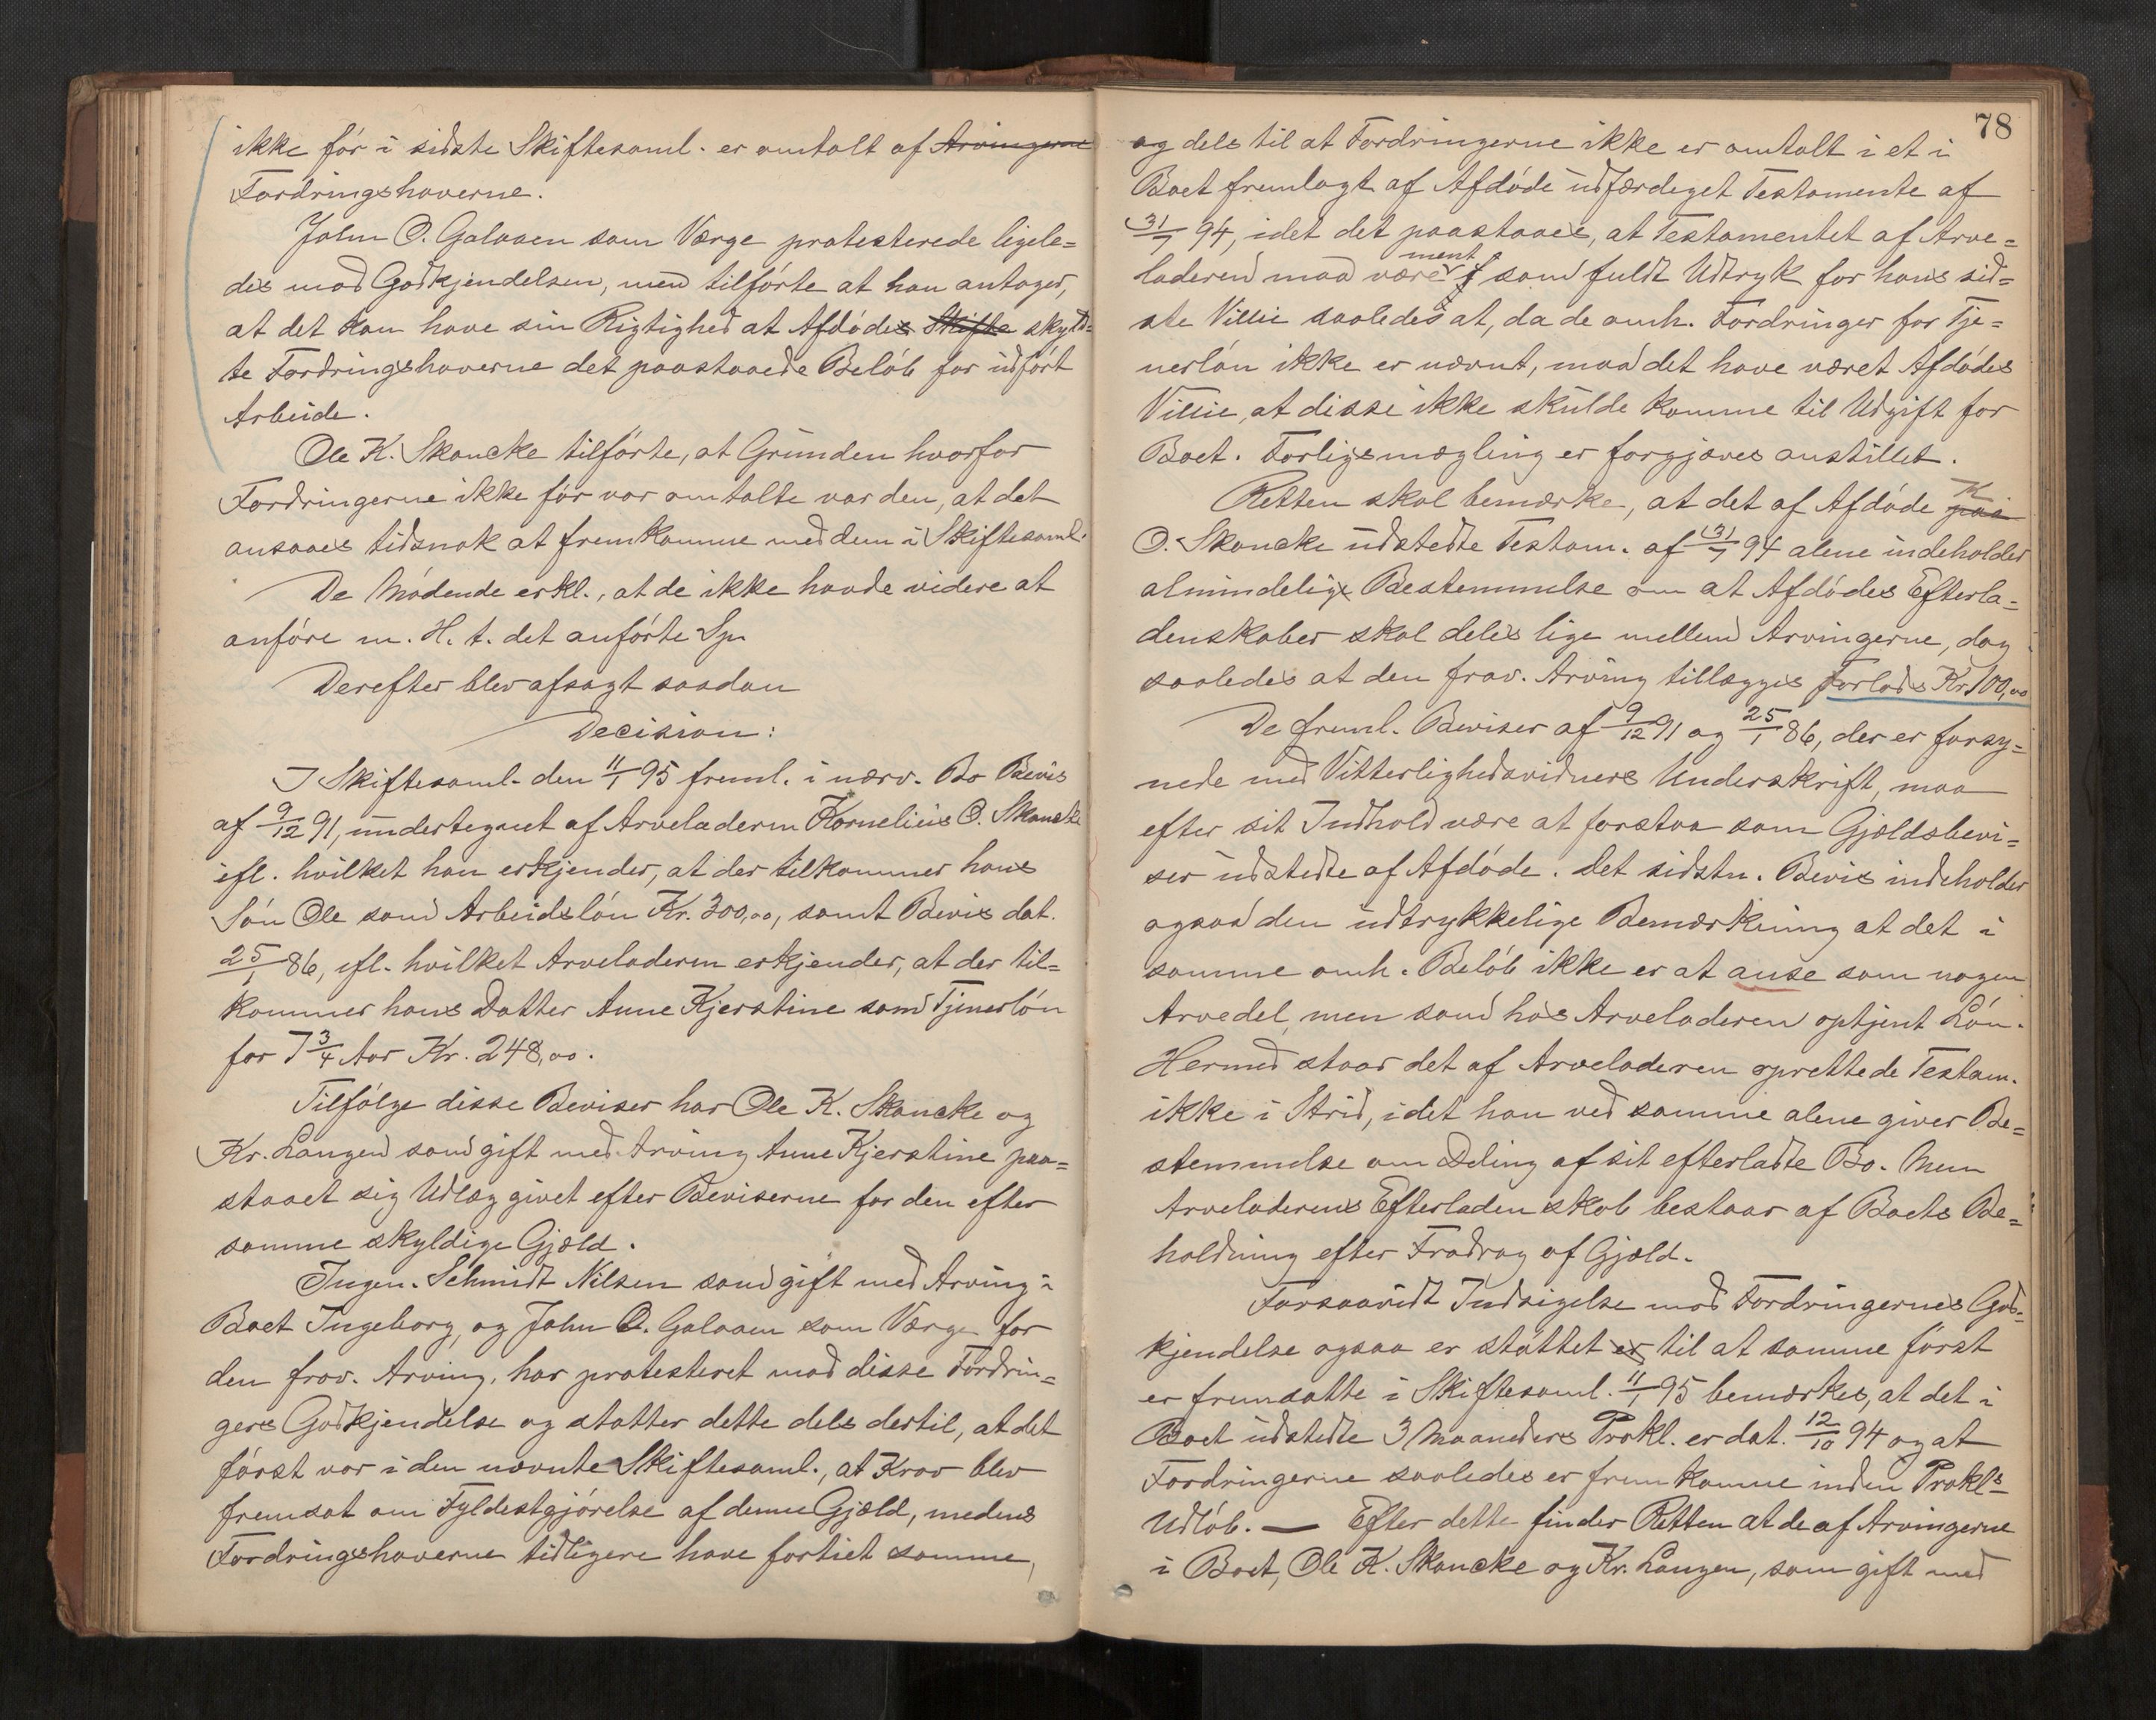 ikke før i sidste Skiftesaml. er omtalt af Arvingerne
Fordringshaverne.
John O. Galaaen som Værge protesterede ligele=
des mod Godkjendelsen, men tilførte at han antager,
at det kan have sin Rigtighed at Afdødes Skifte skyld=
te Fordringshaverne det paastaaede Beløb for udført
Arbeide.
Ole K. Skancke tilførte, at Grunden hvorfor
Fordringerne ikke før var omtalte var den, at det
ansaaes tidsnok at fremkomme med dem i Skiftesaml.
De Mødende erkl., at de ikke havde videre at
anføre m. H. t. det anførte Sp.
Derefter blev afsagt saadan
Decision:
I Skiftesaml. den 11/1 95 freml. i nærv. Bo Bevis
af 9/12 91, undertegnet af Arveladeren Kornelius O. Skancke
ifl. hvilket han erkjender, at der tilkommer hans
Søn Ole som Arbeidsløn Kr. 300,00, samt Bevis dat.
25/1 86, ifl. hvilket Arveladeren erkjender, at der til=
kommer hans Datter Anne Kjerstine som Tjenerløn
for 7 3/4 Aar Kr. 248,00.
Tilfølge disse Beviser har Ole K. Skancke og
Kr. Langen som gift med Arving Anne Kjerstine paa=
staaet sig Udlæg givet efter Beviserne for den efter
samme skyldige Gjæld.
Ingen. Schmidt Nilsen som gift med Arving i
Boet Ingeborg, og John O. Galaaen som Værge for
den frav. Arving, har protesteret mod disse Fordrin=
gers Godkjendelse og støtter dette dels dertil, at det
først var i den nævnte Skiftesaml., at Krav blev
fremsat om Fyldestgjørelse af denne Gjæld, medens
Fordringshaverne tidligere have fortiet samme,
78
og dels til at Fordringerne ikke er omtalt i et i
Boet fremlagt af Afdøde udfærdiget Testamente af
31/7 94, idet det paastaaes, at Testamentet af Arve=
laderen maa være ment som fuldt Udtryk for hans sid=
ste Villie saaledes at, da de omh. Fordringer for Tje=
nerløn ikke er nævnt, maa det have været Afdødes
Villie, at disse ikke skulde komme til Udgift for
Boet. Forligsmægling er forgjæves anstillet.
Retten skal bemærke, at det af Afdøde paa K
O. Skancke udstedte Testam. af 31/7 94 alene indeholder
almindelige Bestemmelse om at Afdødes Efterla=
denskaber skal deles lige mellem Arvingerne, dog
saaledes at den frav. Arving tillægges forlods Kr. 100,00
De freml. Beviser af 9/12 91 og 25/1 86, der er forsy=
nede med Vitterlighedsvidners Underskrift, maa
efter sit Indhold være at forstaa som Gjældsbevi=
ser udstedte af Afdøde. Det sidstn. Bevis indeholder
ogsaa den udtrykkelige Bemærkning at det i
samme omh. Beløb ikke er at anse som nogen
Arvedel, men som hos Arveladeren optjent Løn.
Hermed staar det af Arveladeren oprettede Testam.
ikke i Strid, idet han ved samme alene giver Be=
stemmelse om Deling af sit efterladte Bo. Men
Arveladerens Efterladenskab bestaar af Boets Be=
holdning efter Fradrag af Gjæld.
Forsaavidt Indsigelse mod Fordringernes God=
kjendelse ogsaa er støttet er til at samme først
er fremsatte i Skiftesaml. 11/1 95 bemærkes, at det i
Boet udstedte 3 Maaneders Prokl. er dat. 12/10 94 og at
Fordringerne saaledes er fremkomne inden Prokl.s
Udløb. — Efter dette finder Retten at de af Arvingerne
i Boet, Ole K. Skancke og Kr. Langen, som gift med